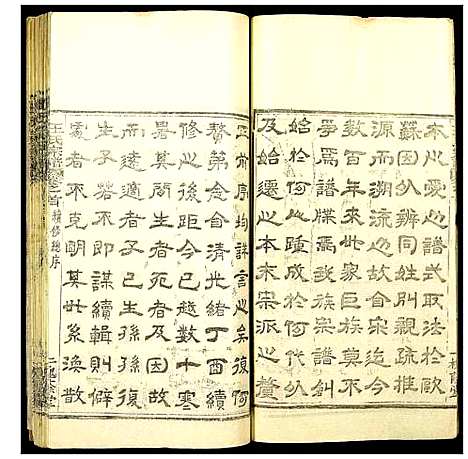 本心爰以譜式取法於歐
蘇因以辨同姓別親疏推
源而溯流之意也宗迄今
數百年來世家巨族莫不
爭為譜牒焉族宗譜創
始於何時踵成於何代以
及始遷之本末宗派之贅
三前序均詳言之矣復何
贅第念自清光緒丁酉續
修之後距今已越數十寒
暑其間生者死者因故
而遠適者子已生孫孫復
生子若不即謀續輯則僻
處者不克明其世系渙散
王氏宗譜 卷之首 續修總序
三槐堂